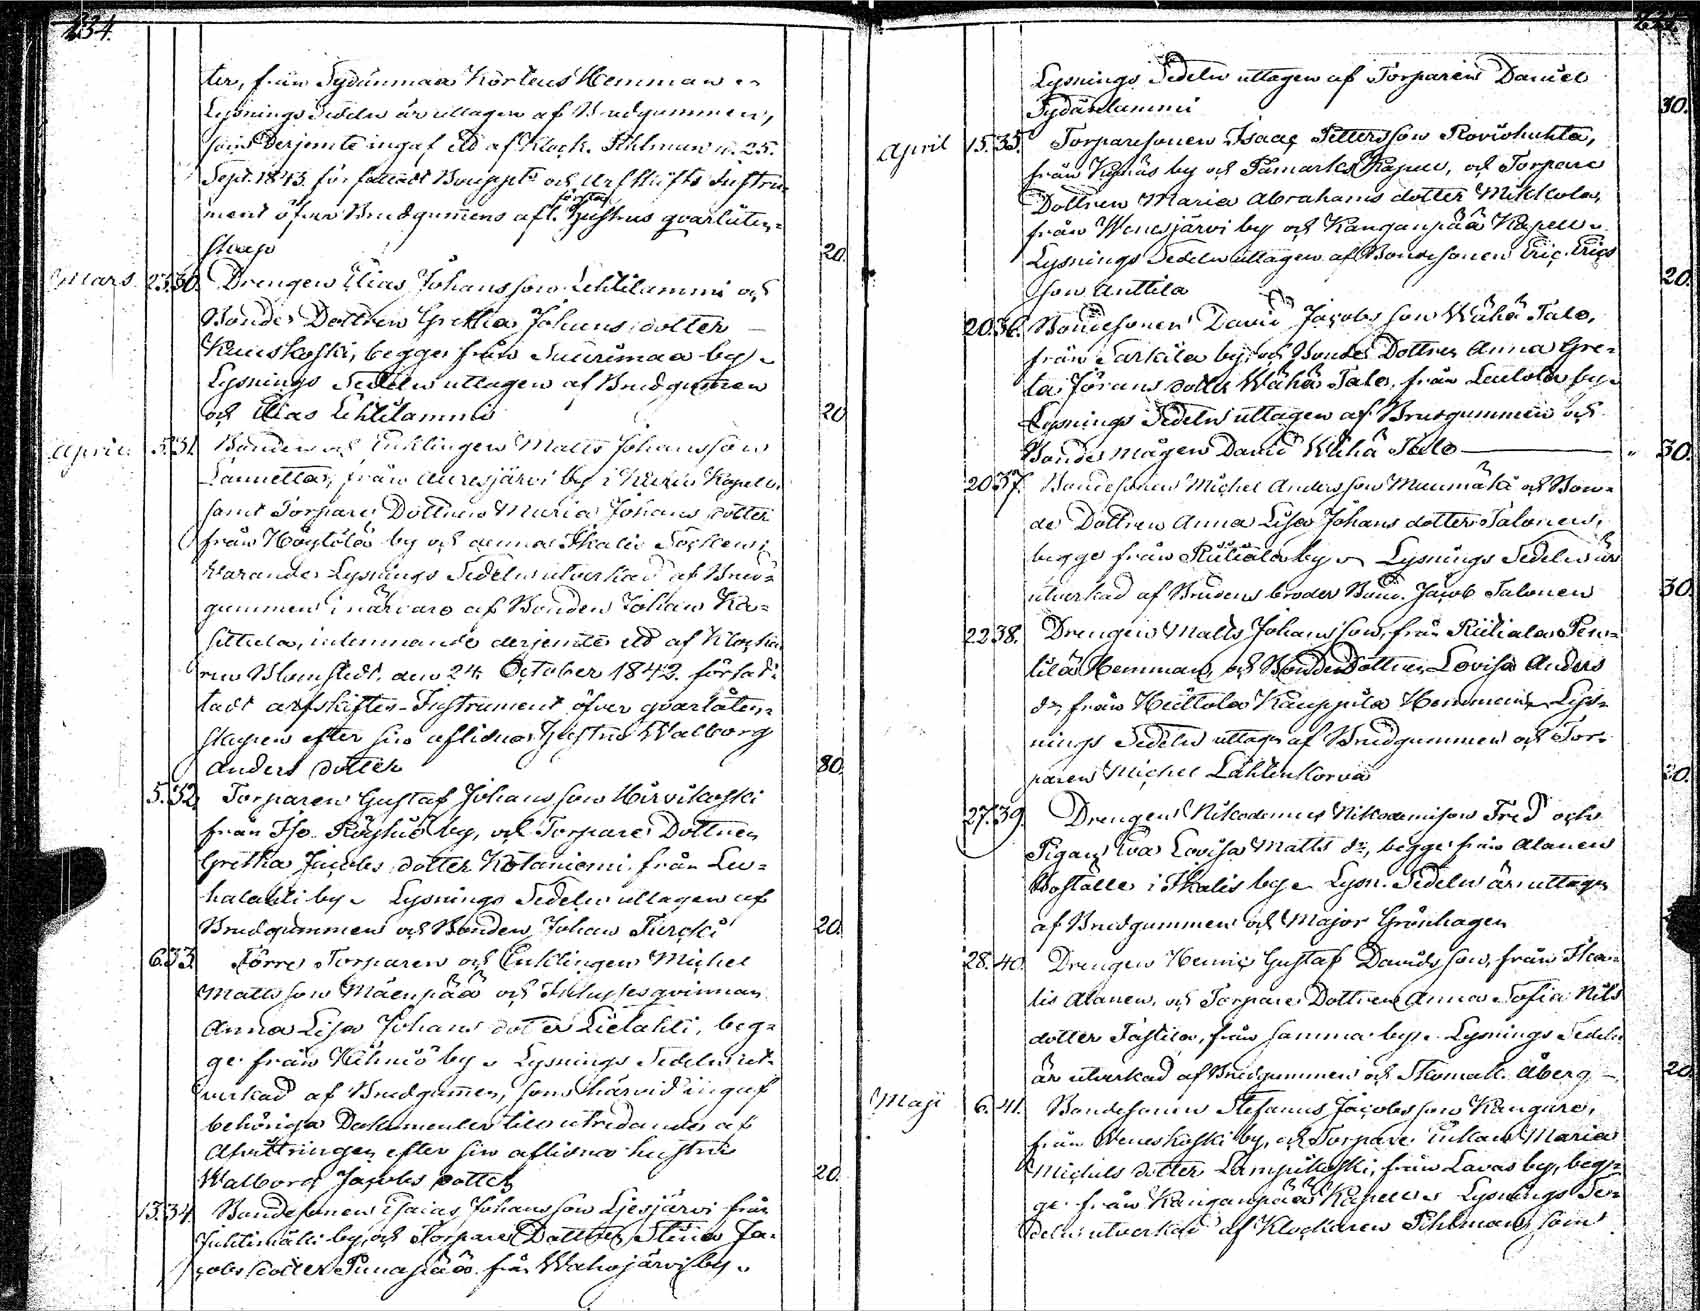 234.
ter, från Sydänmaa Körteus Hemman
Lysnings Sedeln är uttagen af Brudgummen,
som derjemte ingaf ett af Klock. Pihlman d. 25.
Sept. 1843. författadt Boupptt och Arfskifts Instru-
ment öfver Brudgumens afl. förstas Hustrus qvarlåten-
skap 20.
Mars 23. 30. Drengen Elias Johansson Lehtilammi och
Bonde Dottren Gretha Johans dotter
Kuuskoski, begge från Suurimaa by
Lysnings Sedeln uttagen af Brudgumen
och Elias Lehtilammi 20
April 5. 31. Bonden och Enklingen Matts Johansson
Lannetta, från Aurejärvi by i Kuris Kapell,
samt Torpare Dottren Maria Johans dotter
från Höytölä by och denna Ikalis Socken;
varande Lysnings Sedeln utverkad af Brud-
gummen i närvaro af Bonden Johan Ka-
sittula, inlemnande derjemte ett af Klocka-
ren Blomstedt, den 24 October 1842. förfat-
tadt arfskiftes-Instrument öfver qvarlåten-
skapen efter sin aflidna Hustru Walborg
Anders dotter 80.
5. 32. Torparen Gustaf Johansson Hirvikoski
från Iso Röyhiö by, och Torpare Dottren
Gretha Jacobs dotter Kotaniemi från Leu-
halahti by Lysnings Sedeln uttagen af
Brudgummen och Bonden Johan Turcki 20.
6. 33. Förre Torparen och Enklingen Michel
Mattsson Mäenpää och Inhysesqvinnan
Anna Lisa Johans dotter Lielahti, beg-
ge från Kihniö by Lysnings Sedeln ut-
verkad af Brudgumen, som härvid ingaf
behöriga Dokumenter till utredande af
Afvittringen efter sin aflidna hustru
Walborg Jacobs dotter 20.
13. 34. Bondesonen Esaias Johansson Ljesjärvi från
Juhtimäki by, och Torpare Dottren Stina Ja-
cobs dotter Punapää från Wahojärvi by
Lysnings Sedeln uttagen af Torparen Daniel
Sydänlammi 30.
April 15. 35. Torparesonen Isaac Pettersson Roviohuhta,
från by och Påmarks Kapell, och Torpare
Dottren Maria Abrahams dotter Mikkola,
från Wenesjärvi by och Kanganpää Kapell
Lysnings Sedeln uttagen af Bondesonen Eric Erics
son Anttila 20.
20. 36. Bondesonen David Jacobsson Wähä Talo,
från Sarkila by, och Bonde Dottren Anna Gre-
ta Jörans dotter Wähä Talo, från Leutola by
Lysnings Sedeln uttagen af Brudgummen och
Bonde mågen David Wähä Talo 30.
20. 37. Bondesonen Michel Andersson Muumäki och Bon-
de Dottren Anna Lisa Johans dotter Talonen,
begge från Riitiala by Lysnings Sedeln är
utverkad af Brudens broder Bond. Jacob Talonen 30.
22. 38. Drengen Matts Johansson, från Riitiala Pen-
tilä Hemman, och Bonde Dottren Lovisa Anders
dr från Heittola Kauppila Hemman Lys-
nings Sedeln uttagen af Brudgummen och Tor-
paren Michel Lähtenkorva 20.
27. 39. Drengen Nikodemus Nikodemisson Fred och
Pigan Eva Lovisa Matts dr, begge från Alanen
Boställe i Ikalis by Lysn. Sedeln är uttagen
af Brudgummen och Major Grönhagen
28. 40. Drengen Heinric Gustaf Davidsson, från Ika-
lis Alanen, och Torpare Dottren Anna Sofia Nils
dotter Tastila, från samma by. Lysnings Sedeln
är utverkad af Brudgummen och Skomak. Åberg 20
Maji 6. 41. Bondesonen Stefanus Jacobsson Kangare,
från Weneskoski by, och Torpare Enkan Maria
Michels dotter Lampikoski, från Lavas by, beg-
ge från Kanganpää Kapell Lysnings Se-
deln utverkad af Klockaren Pihlman, som